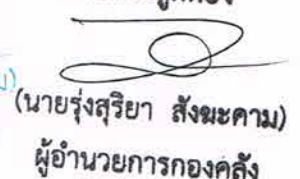 (นายรุ่งสุริยา สังฆะคาม)
ผู้อำนวยการกองคลัง